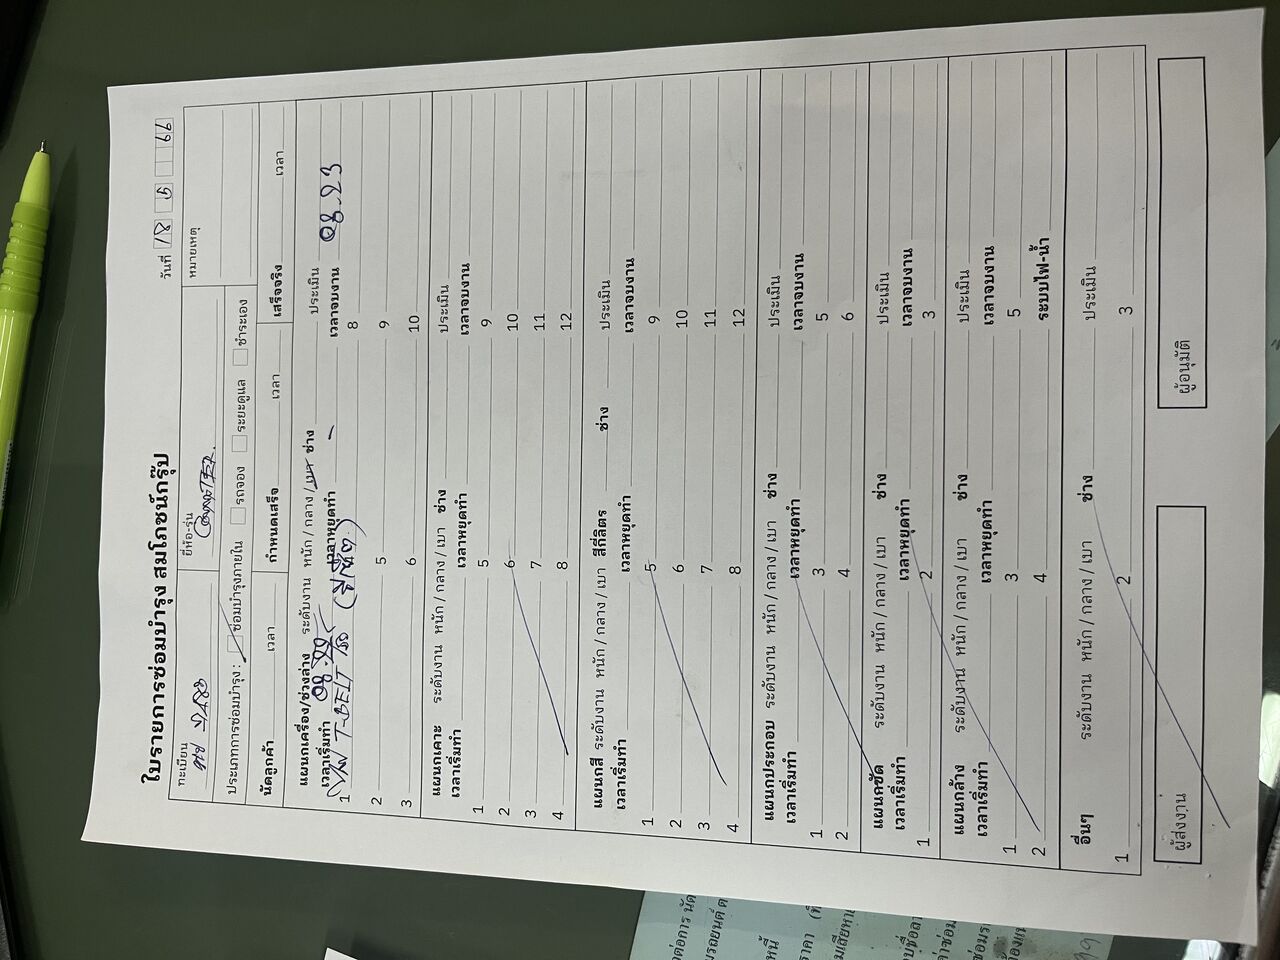 ใบรายการซ่อมบำรุง สมโภชน์กรุ๊ป
วันที่ 18 5 66
ทะเบียน ยี่ห้อ-รุ่น หมายเหตุ
ประเภทการซ่อมบำรุง: ซ่อมบำรุงภายใน รถจอง ระยะดูแล ชำระเอง
นัดลูกค้า เวลา กำหนดเสร็จ เวลา เสร็จจริง เวลา
แผนกเครื่อง/ช่วงล่าง ระดับงาน หนัก / กลาง / เบา ช่าง ประเมิน
เวลาเริ่มทำ เวลาหยุดทำ - เวลาจบงาน 08.23
1 T-BELT 8
2 5 9
3 6 10
แผนกเคาะ ระดับงาน หนัก / กลาง / เบา ช่าง ประเมิน
เวลาเริ่มทำ เวลาหยุดทำ เวลาจบงาน
1 5 9
2 6 10
3 7 11
4 8 12
แผนกสี ระดับงาน หนัก / กลาง / เบา สีกี่ลิตร ช่าง ประเมิน
เวลาเริ่มทำ เวลาหยุดทำ เวลาจบงาน
1 5 9
2 6 10
3 7 11
4 8 12
แผนกประกอบ ระดับงาน หนัก / กลาง / เบา ช่าง ประเมิน
เวลาเริ่มทำ เวลาหยุดทำ เวลาจบงาน
1 3 5
2 4 6
แผนกขัด ระดับงาน หนัก / กลาง / เบา ช่าง ประเมิน
เวลาเริ่มทำ เวลาหยุดทำ เวลาจบงาน
1 2 3
แผนกล้าง ระดับงาน หนัก / กลาง / เบา ช่าง ประเมิน
เวลาเริ่มทำ เวลาหยุดทำ เวลาจบงาน
1 3 5
2 4 ระบบไฟ-น้ำ
อื่นๆ ระดับงาน หนัก / กลาง / เบา ช่าง ประเมิน
1 2 3
ผู้ส่งงาน ผู้อนุมัติ